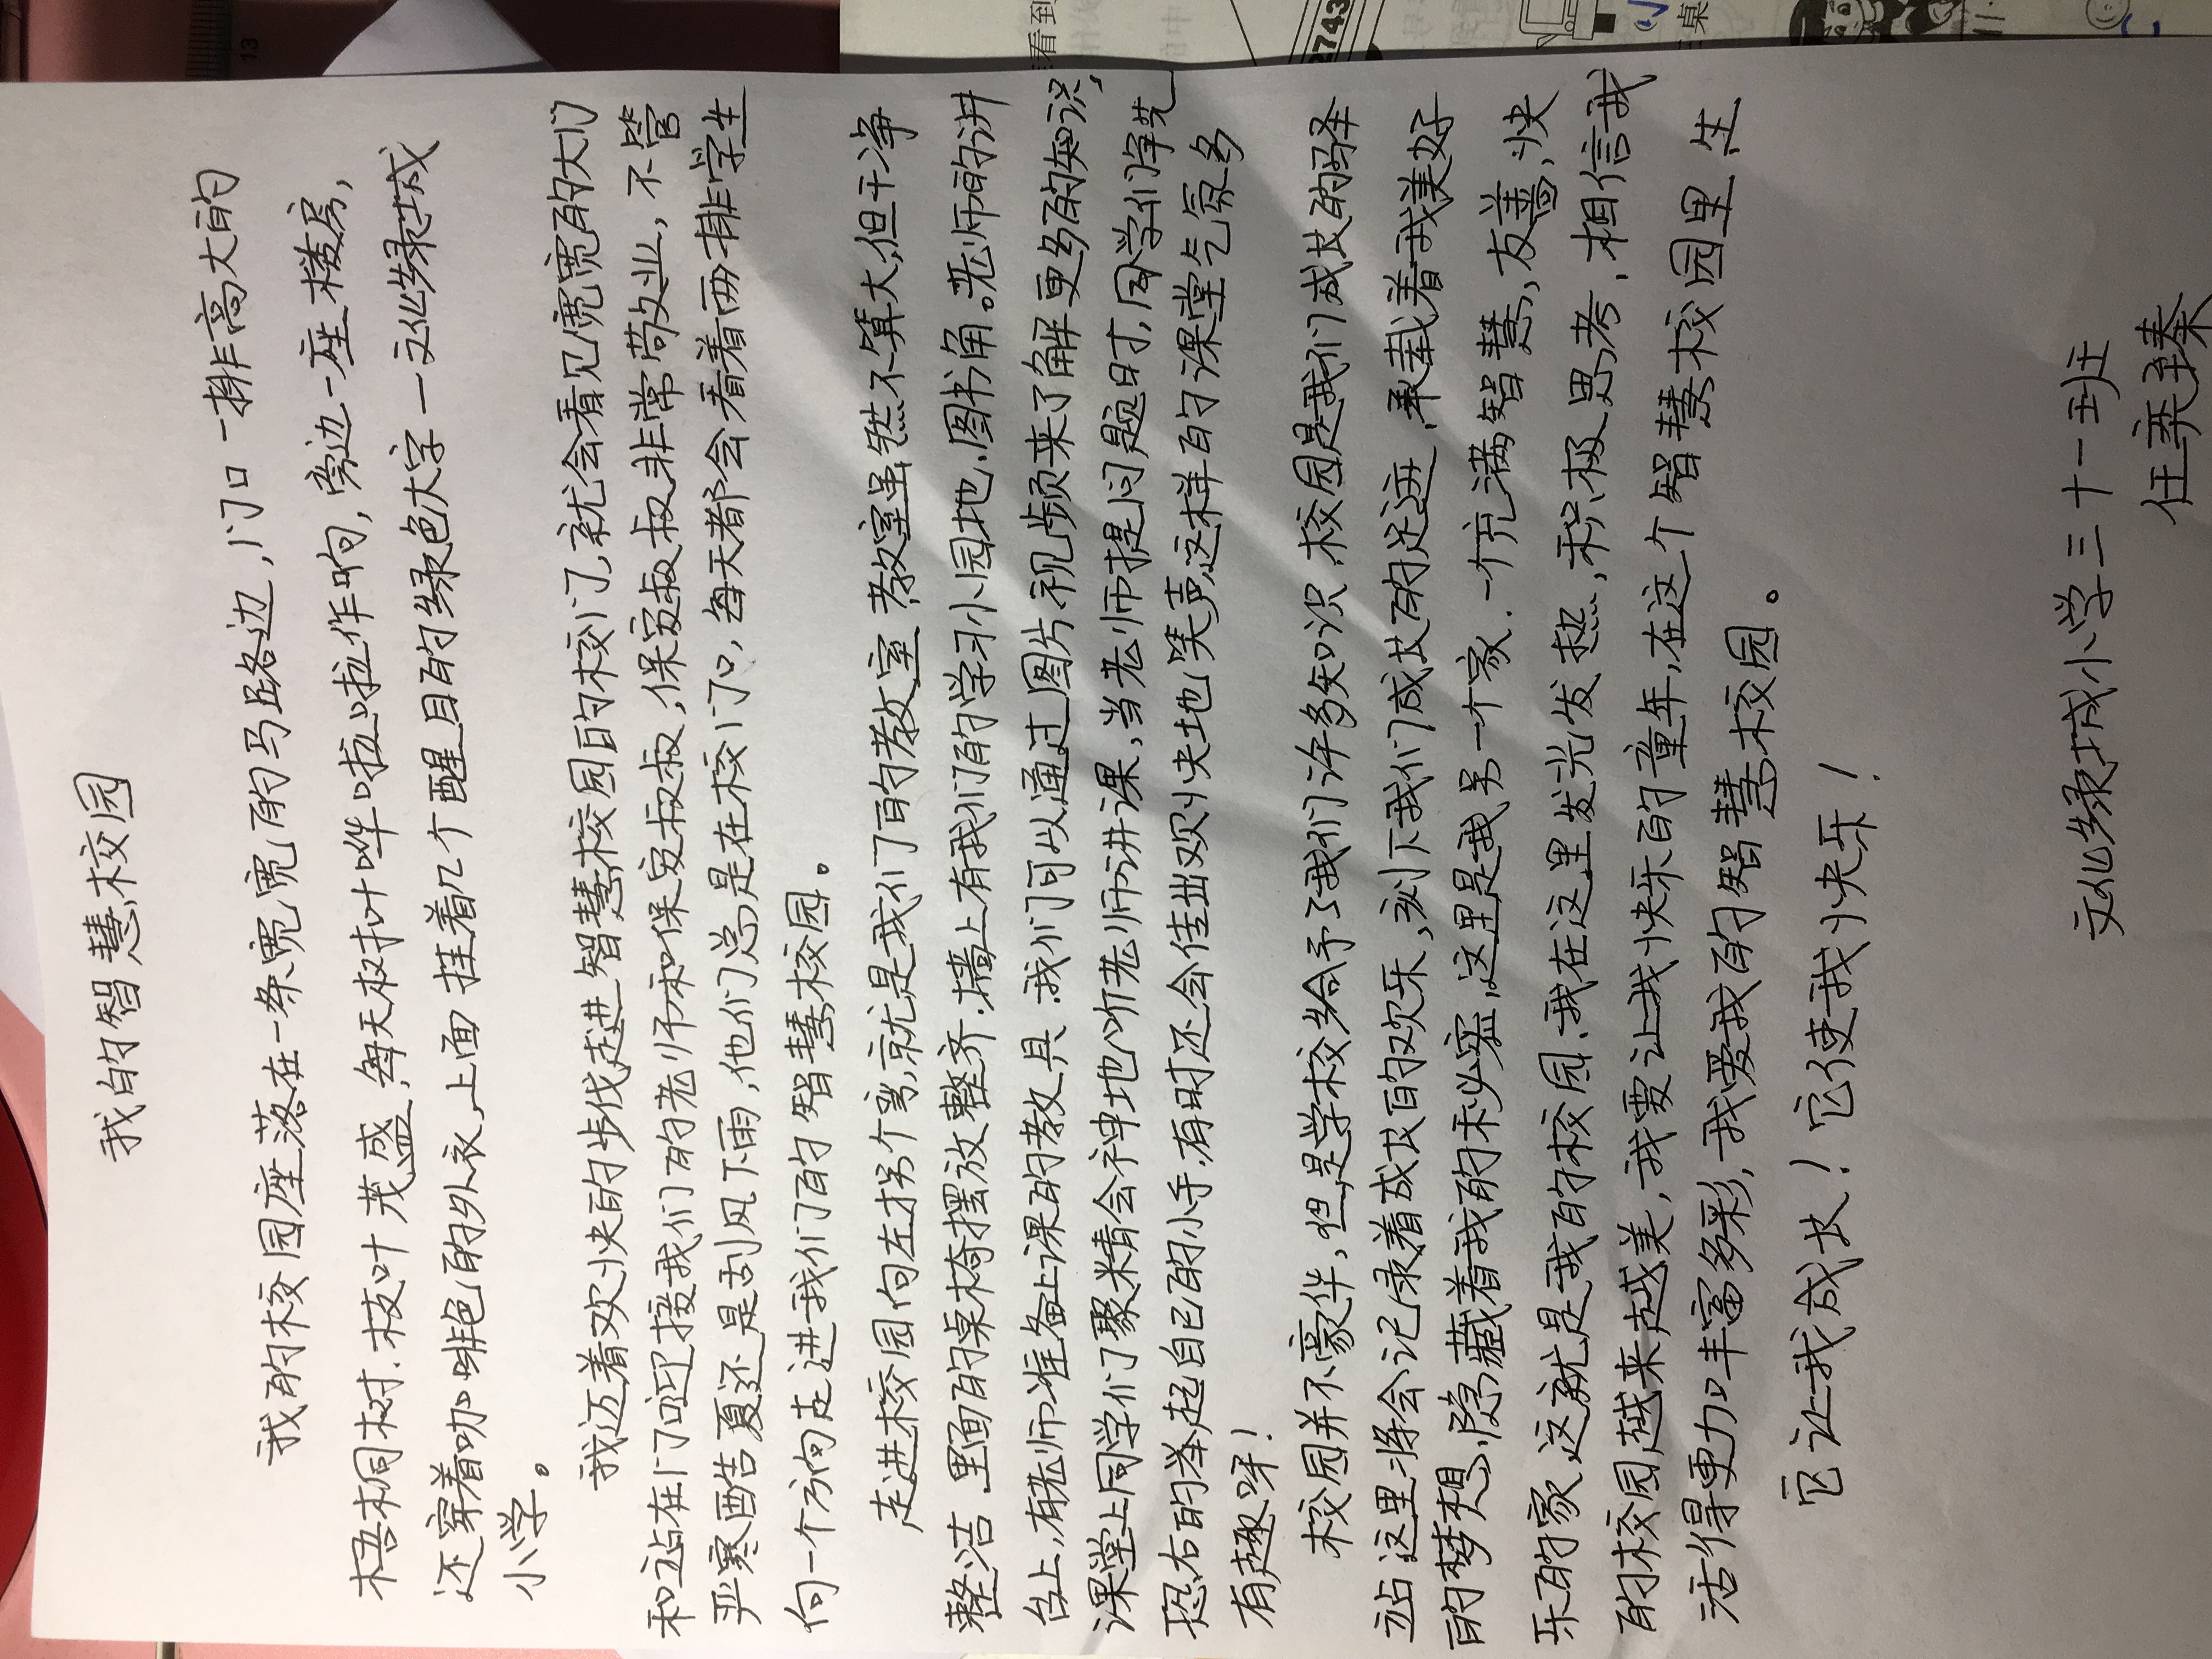 我的智慧校园
我的校园座落在一条宽宽的马路边,门口一排高大的
梧桐树.枝叶茂盛,每天树叶哗啦啦作响,旁边一座楼房,
还穿着咖啡色的外衣,上面挂着几个醒目的绿色大字一文化绿城
小学。
我迈着欢快的步伐走进智慧校园的校门,就会看见宽宽的大门
和站在门口迎接我们的老师和保安叔叔,保安叔叔非常敬业,不管
严寒酷夏还是刮风下雨,他们总是在校门口,每天都会看着两排学生
向一个方向走进我们的智慧校园。
走进校园向左拐个弯,就是我们的教室 教室虽然不算大,但干净
整洁 里面的桌椅摆放整齐.墙上有我们的学习小园地.图书角。老师的讲
台上,有老师准备上课的教具.我们可以通过图片视频来了解更多的知识,
课堂上同学们聚精会神地听老师讲课,当老师提问题时,同学们争先
恐右的举起自己的小手.有时还会传出欢快地笑声这样的课堂气氛多
有趣呀!
校园并不豪华,但是学校给予了我们许多知识.校园是我们成长的驿
站 这里将会记录着成长的欢乐,刻下我们成长的足迹,承载着我美好
的梦想,隐藏着我的秘密,这里是我另一个家.一个充满智慧,友善,快
乐的家,这就是我的校园.我在这里发光发热,积极思考,相信我
的校园越来越美,我要让我快乐的童年,在这个智慧校园里,生
活得更加丰富多彩,我爱我的智慧校园。
它让我成长!它使我快乐!
文化绿城小学三十一班
任奕臻
13
看到
2743
桌
11